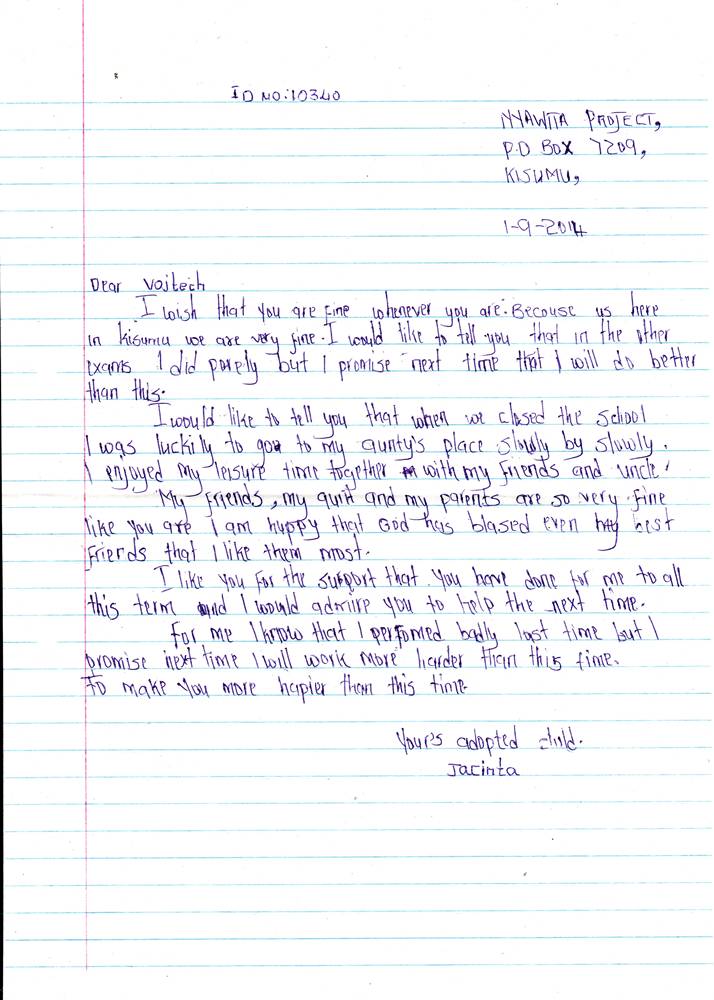 ID NO:10340
NYAWITA PROJECT,
P.O BOX 7209,
KISUMU,
1-9-2014
Dear Vojtech
I wish that you are fine whenever you are. Becouse us here
in kisumu we are very fine. I would like to tell you that in the other
exams I did porely but I promise next time that I will do better
than this.
I would like to tell you that when we closed the school
I was luckily to go to my aunty's place slowly by slowly.
I enjoyed my leisure time together with my friends and uncle.
My friends, my aunt and my parents are so very fine
like you are I am huppy that God has blased even my best
friends that I like them most.
I like you for the support that you have done for me to all
this term and I would admire you to help the next time.
For me I know that I perfomed badly last time but I
promise next time I will work more harder than this time.
To make you more hapier than this time.
Your's adopted child.
Jacinta